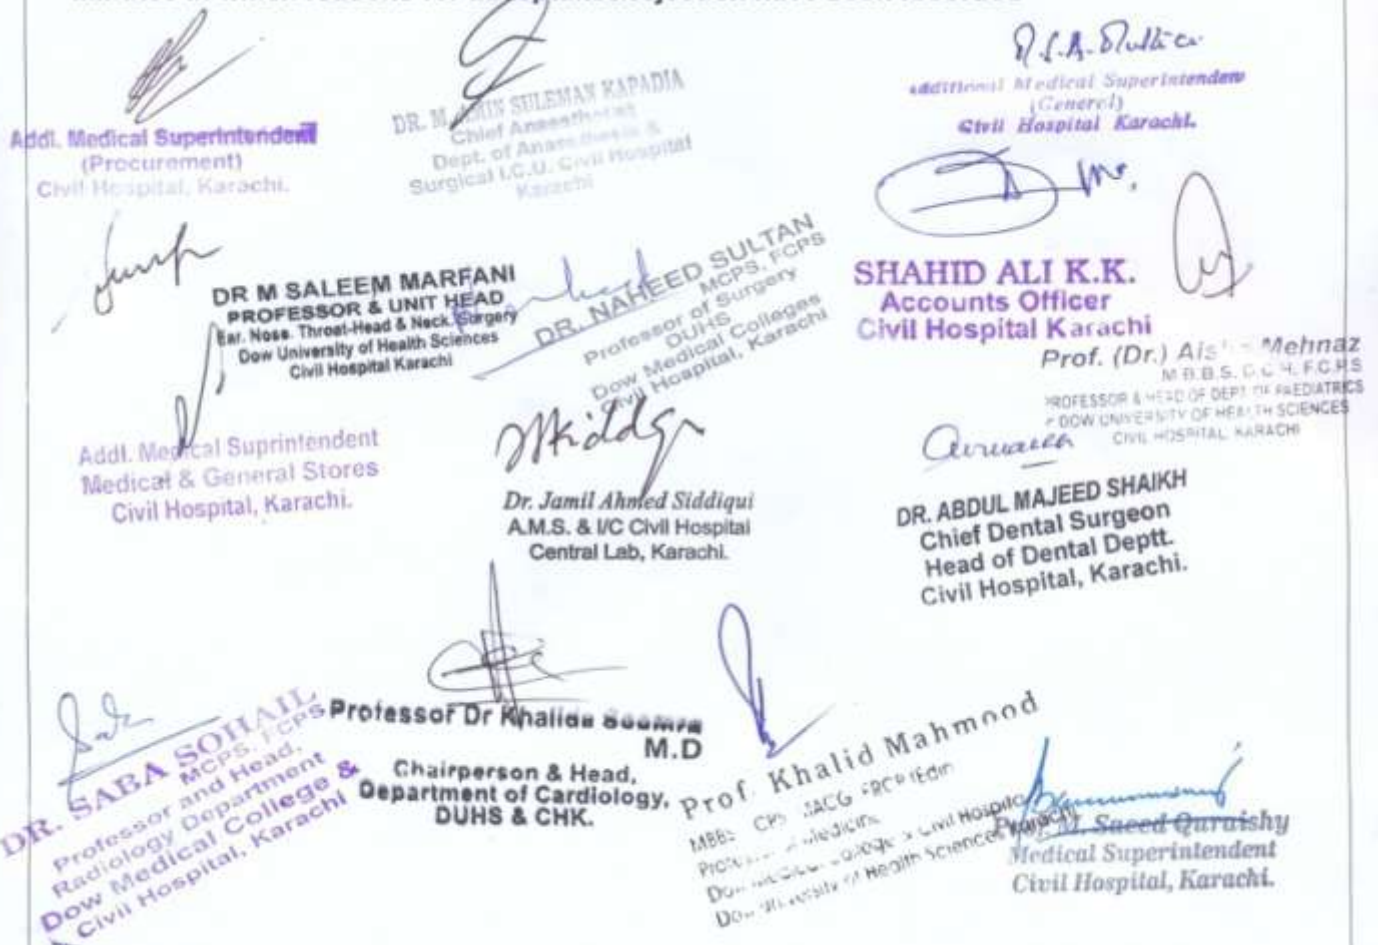 Addl. Medical Superintendent
(Procurement)
Civil Hospital, Karachi.
DR. M. AMIN SULEMAN KAPADIA
Chief Anaesthetist
Dept. of Anaesthesia &
Surgical I.C.U. Civil Hospital
Karachi
Additional Medical Superintendent
(General)
Civil Hospital Karachi.
DR M SALEEM MARFANI
PROFESSOR & UNIT HEAD
Ear. Nose. Throat-Head & Neck. Surgery
Dow University of Health Sciences
Civil Hospital Karachi
DR. NAHEED SULTAN
MCPS, FCPS
Professor of Surgery
DUHS
Dow Medical Colleges
Civil Hospital, Karachi
SHAHID ALI K.K.
Accounts Officer
Civil Hospital Karachi
Prof. (Dr.) Mehnaz
M.B.B.S. D.C.H. F.C.P.S
PROFESSOR & HEAD OF DEPT. OF PAEDIATRICS
DOW UNIVERSITY OF HEALTH SCIENCES
CIVIL HOSPITAL, KARACHI
Addl. Medical Suprintendent
Medical & General Stores
Civil Hospital, Karachi.
Dr. Jamil Ahmed Siddiqui
A.M.S. & I/C Civil Hospital
Central Lab, Karachi.
DR. ABDUL MAJEED SHAIKH
Chief Dental Surgeon
Head of Dental Deptt.
Civil Hospital, Karachi.
DR. SABA SOHAIL
MCPS, FCPS
Professor and Head,
Radiology Department
Dow Medical College &
Civil Hospital, Karachi
Professor Dr Khalida Soomro
M.D
Chairperson & Head,
Department of Cardiology,
DUHS & CHK.
Prof. Khalid Mahmood
Civil Hospital
University of Health Sciences Karachi
M. Saeed Quraishy
Medical Superintendent
Civil Hospital, Karachi.